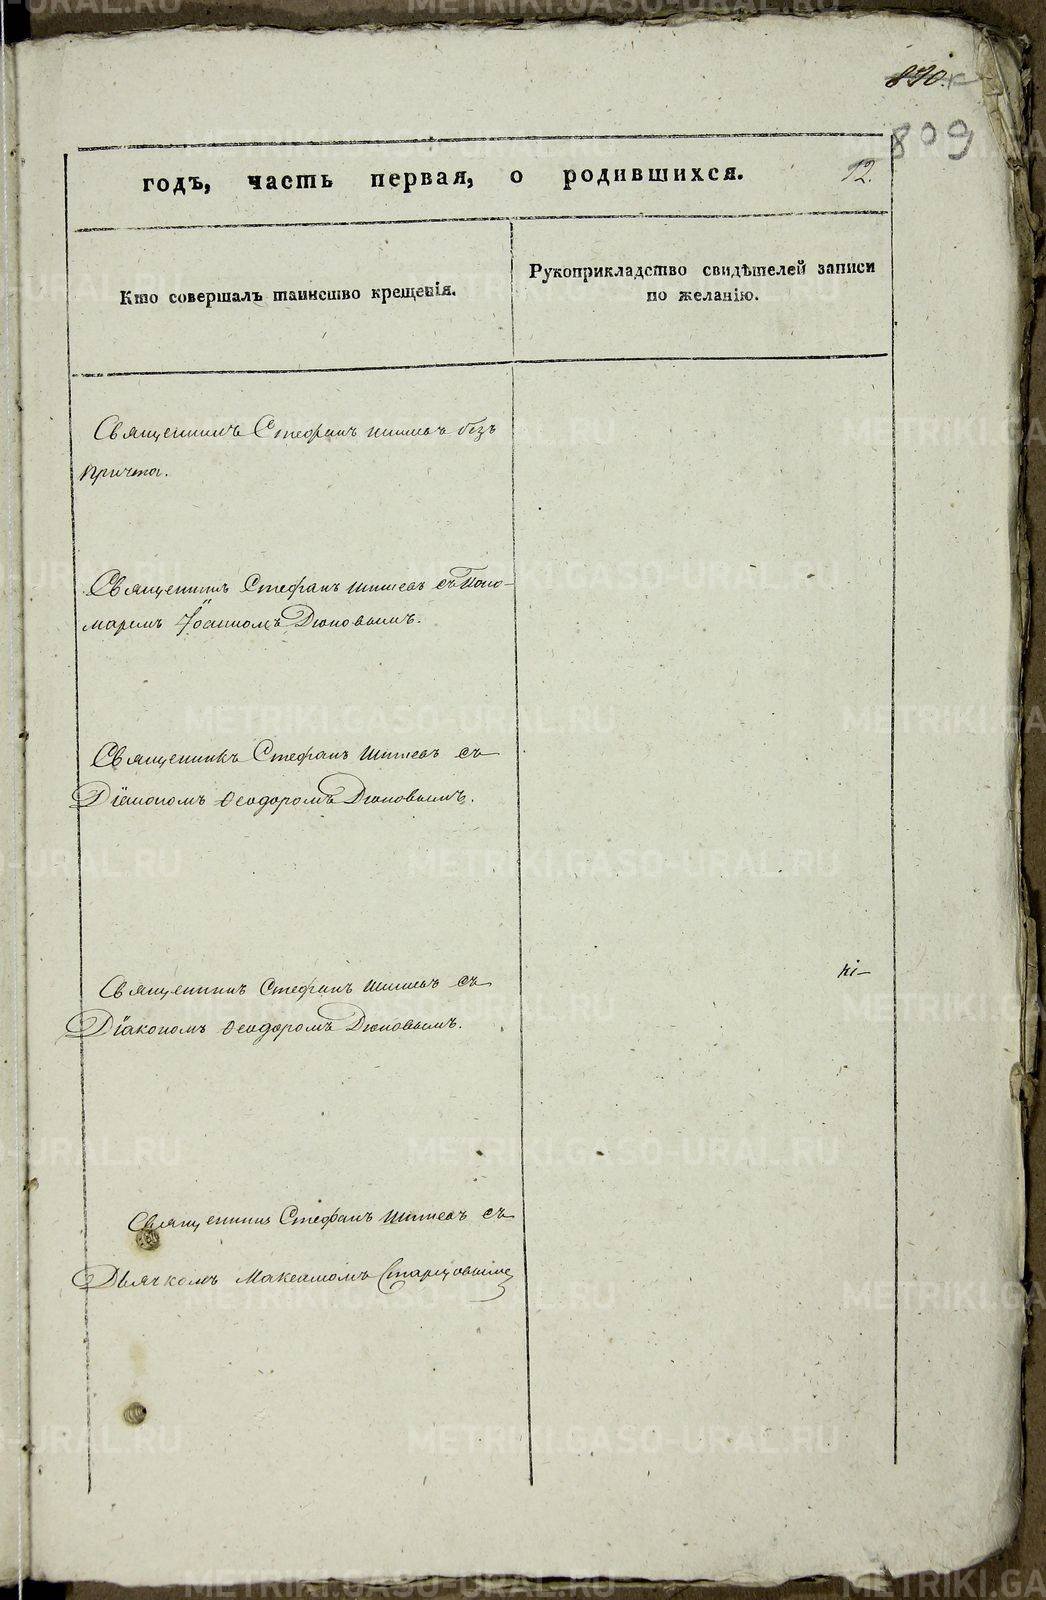 830.
809
годъ, часть первая, о родившихся.
12.
Кто совершалъ таинство крещенія.
Рукоприкладство свидѣтелей записи
по желанію.
Священникъ Стефанъ Шишевъ безъ
причта.
Священникъ Стефанъ Шишевъ съ Поно-
маремъ Іоанномъ Дюповымъ.
Священникъ Стефанъ Шишевъ съ
Діакономъ Ѳеодоромъ Дюповымъ.
Священникъ Стефанъ Шишевъ съ
Діакономъ Ѳеодоромъ Дюповымъ.
Священникъ Стефанъ Шишевъ съ
Дьячкомъ Максимомъ Старцовымъ
METRIKI.GASO-URAL.RU